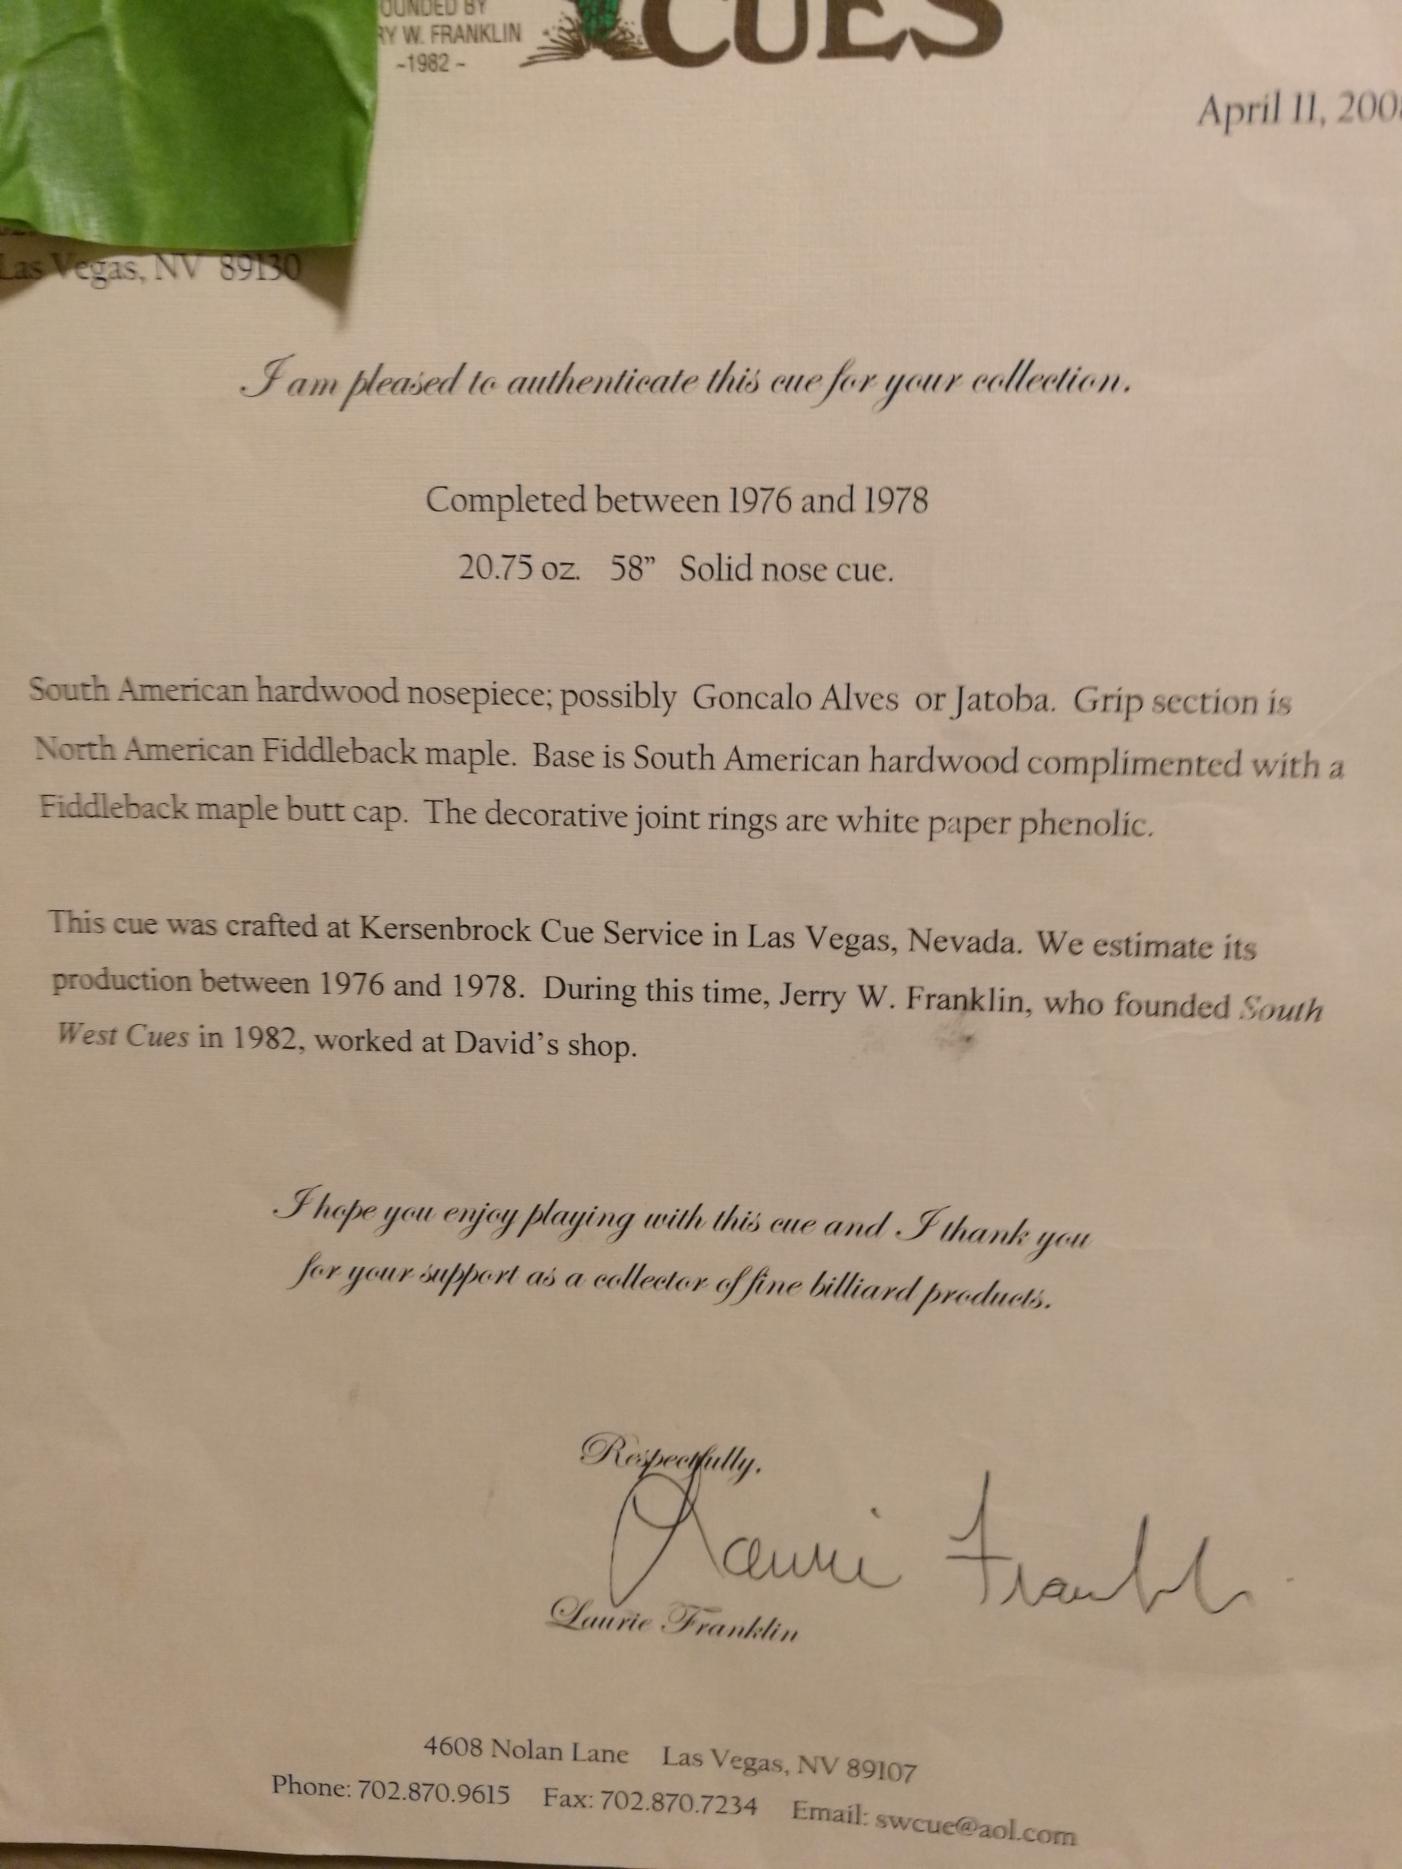 OUNDED BY
RY W. FRANKLIN
-1982 -
CUES
April 11, 200
Las Vegas, NV 89130
I am pleased to authenticate this cue for your collection.
Completed between 1976 and 1978
20.75 oz. 58” Solid nose cue.
South American hardwood nosepiece; possibly Goncalo Alves or Jatoba. Grip section is
North American Fiddleback maple. Base is South American hardwood complimented with a
Fiddleback maple butt cap. The decorative joint rings are white paper phenolic.
This cue was crafted at Kersenbrock Cue Service in Las Vegas, Nevada. We estimate its
production between 1976 and 1978. During this time, Jerry W. Franklin, who founded South
West Cues in 1982, worked at David’s shop.
I hope you enjoy playing with this cue and I thank you
for your support as a collector of fine billiard products.
Respectfully,
Laurie Franklin
Laurie Franklin
4608 Nolan Lane Las Vegas, NV 89107
Phone: 702.870.9615 Fax: 702.870.7234 Email: swcue@aol.com